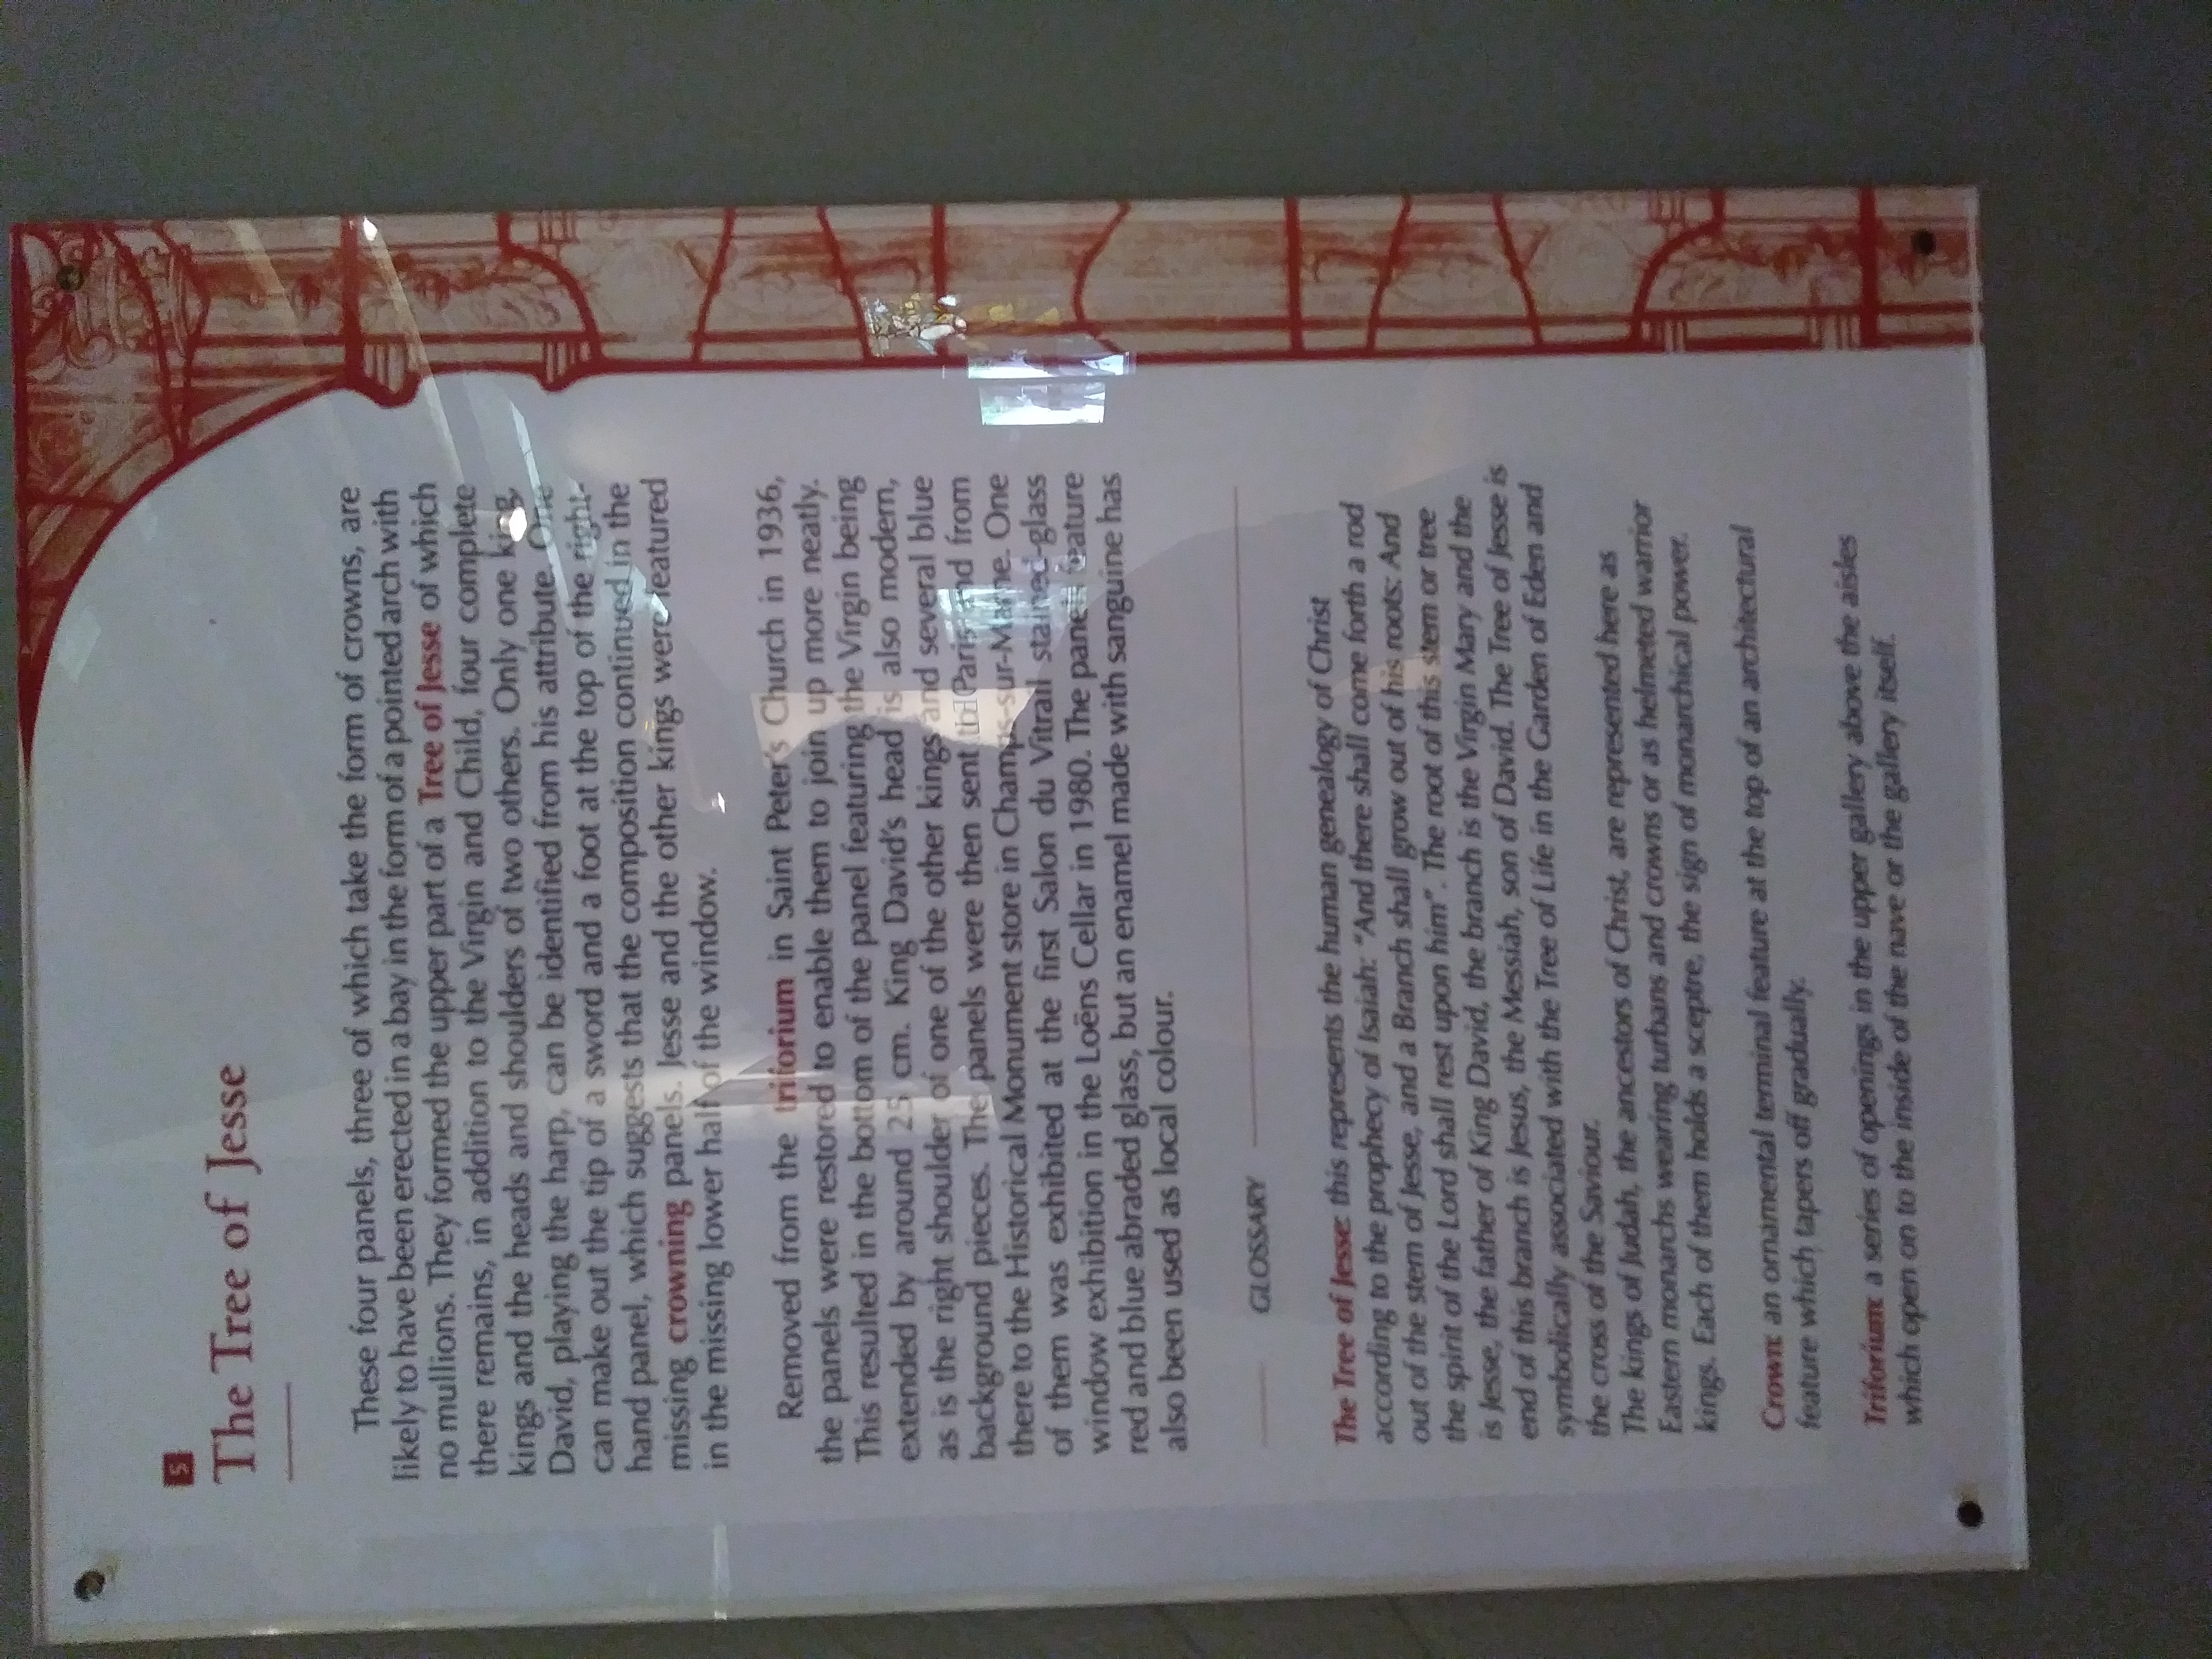 5
The Tree of Jesse
These four panels, three of which take the form of crowns, are
likely to have been erected in a bay in the form of a pointed arch with
no mullions. They formed the upper part of a Tree of Jesse of which
there remains, in addition to the Virgin and Child, four complete
kings and the heads and shoulders of two others. Only one king,
David, playing the harp, can be identified from his attribute. One
can make out the tip of a sword and a foot at the top of the right-
hand panel, which suggests that the composition continued in the
missing crowning panels. Jesse and the other kings were featured
in the missing lower half of the window.
Removed from the triforium in Saint Peter's Church in 1936,
the panels were restored to enable them to join up more neatly.
This resulted in the bottom of the panel featuring the Virgin being
extended by around 25 cm. King David's head is also modern,
as is the right shoulder of one of the other kings and several blue
background pieces. The panels were then sent to Paris and from
there to the Historical Monument store in Champs-sur-Marne. One
of them was exhibited at the first Salon du Vitrail stained-glass
window exhibition in the Loëns Cellar in 1980. The panels feature
red and blue abraded glass, but an enamel made with sanguine has
also been used as local colour.
GLOSSARY
The Tree of Jesse: this represents the human genealogy of Christ
according to the prophecy of Isaiah: "And there shall come forth a rod
out of the stem of Jesse, and a Branch shall grow out of his roots: And
the spirit of the Lord shall rest upon him". The root of this stem or tree
is Jesse, the father of King David, the branch is the Virgin Mary and the
end of this branch is Jesus, the Messiah, son of David. The Tree of Jesse is
symbolically associated with the Tree of Life in the Garden of Eden and
the cross of the Saviour.
The kings of Judah, the ancestors of Christ, are represented here as
Eastern monarchs wearing turbans and crowns or as helmeted warrior
kings. Each of them holds a sceptre, the sign of monarchical power.
Crown: an ornamental terminal feature at the top of an architectural
feature which tapers off gradually.
Triforium: a series of openings in the upper gallery above the aisles
which open on to the inside of the nave or the gallery itself.